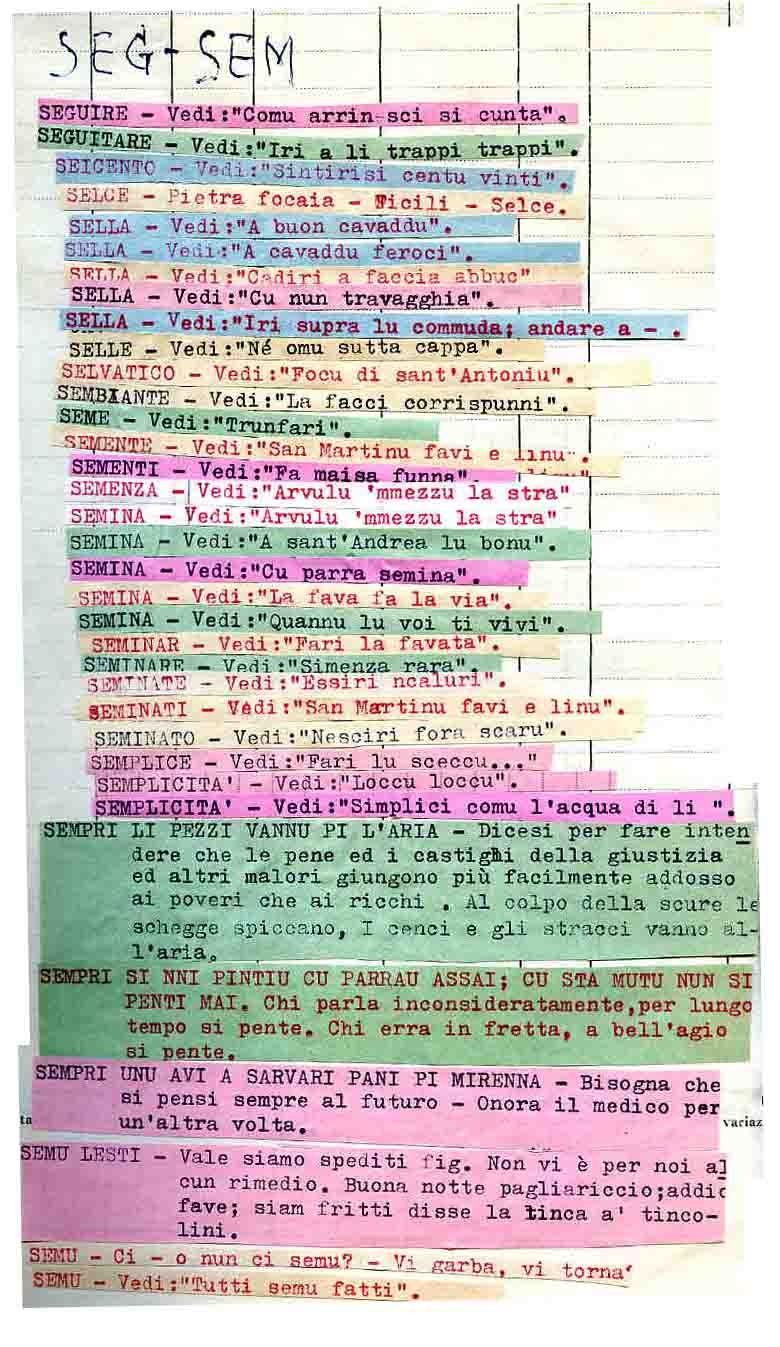 SEG-SEM
SEGUIRE - Vedi:"Comu arrin-sci si cunta".
SEGUITARE - Vedi:"Iri a li trappi trappi".
SEICENTO - Vedi:"Sintirisi centu vinti".
SELCE - Pietra focaia - Ficili - Selce.
SELLA - Vedi:"A buon cavaddu".
SELLA - Vedi:"A cavaddu feroci".
SELLA - Vedi:"Cadiri a faccia abbuc"
SELLA - Vedi:"Cu nun travagghia".
SELLA - Vedi:"Iri supra lu commuda; andare a - .
SELLE - Vedi:"Né omu sutta cappa".
SELVATICO - Vedi:"Focu di sant'Antoniu".
SEMBIANTE - Vedi:"La facci corrispunni".
SEME - Vedi:"Trunfari".
SEMENTE - Vedi:"San Martinu favi e linu".
SEMENTI - Vedi:"Fa maisa funna".
SEMENZA - Vedi:"Arvulu 'mmezzu la stra"
SEMINA - Vedi:"Arvulu 'mmezzu la stra"
SEMINA - Vedi:"A sant'Andrea lu bonu".
SEMINA - Vedi:"Cu parra semina".
SEMINA - Vedi:"La fava fa la via".
SEMINA - Vedi:"Quannu lu voi ti vivi".
SEMINAR - Vedi:"Fari la favata".
SEMINARE - Vedi:"Simenza rara".
SEMINATE - Vedi:"Essiri ncaluri".
SEMINATI - Vedi:"San Martinu favi e linu".
SEMINATO - Vedi:"Nesciri fora scaru".
SEMPLICE - Vedi:"Fari lu sceccu..."
SEMPLICITA' - Vedi:"Loccu loccu".
SEMPLICITA' - Vedi:"Simplici comu l'acqua di li ".
SEMPRI LI PEZZI VANNU PI L'ARIA - Dicesi per fare inten
dere che le pene ed i castighi della giustizia
ed altri malori giungono più facilmente addosso
ai poveri che ai ricchi . Al colpo della scure le
schegge spiccano, I cenci e gli stracci vanno al-
l'aria.
SEMPRI SI NNI PINTIU CU PARRAU ASSAI; CU STA MUTU NUN SI
PENTI MAI. Chi parla inconsideratamente,per lungo
tempo si pente. Chi erra in fretta, a bell'agio
si pente.
SEMPRI UNU AVI A SARVARI PANI PI MIRENNA - Bisogna che
si pensi sempre al futuro - Onora il medico per
un'altra volta.
ta
variaz
SEMU LESTI - Vale siamo spediti fig. Non vi è per noi al
cun rimedio. Buona notte pagliariccio;addio
fave; siam fritti disse la tinca a' tinco-
lini.
SEMU - Ci - o nun ci semu? - Vi garba, vi torna'
SEMU - Vedi:"Tutti semu fatti".